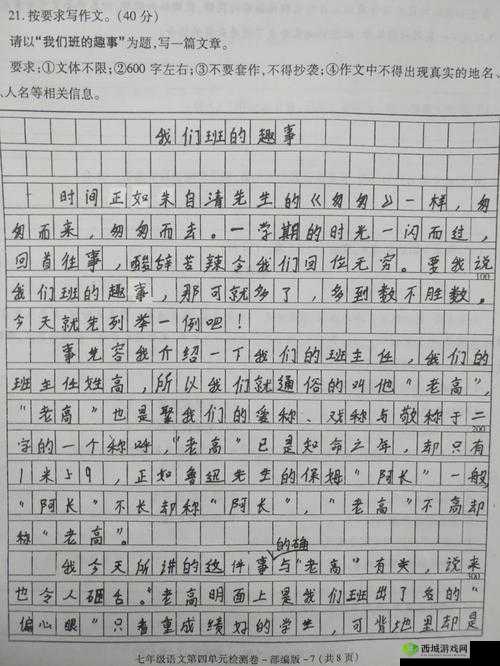 21.按要求写作文。(40分)
请以“我们班的趣事”为题,写一篇文章。
要求:①文体不限;②600字左右;③不要套作,不得抄袭;④作文中不得出现真实的地名、
人名等相关信息。
我们班的趣事
时间正如朱自清先生的《匆匆》一样,匆
匆而来,匆匆而去。一学期的时光一闪而过,
回首往事,酸甜苦辣令我们回位无穷。要我说
100
我们班的趣事,那可就多了,多到数不胜数。
今天就先列举一例吧!
事先容我介绍一下我们的班主任,我们的
班主任姓高,所以我们就通俗的叫他“老高”,
“老高”也是聚我们的爱称、戏称与敬称于二
200
字的一个称呼,“老高”已是知命之年,却只有
1米59,正如鲁迅先生的保姆“阿长”一般
“阿长”不长却称“阿长”,“老高”不高却
称“老高”。
的确
我今天所讲的这件事与“老高”有关,说来
300
也令人砸舌。“老高明面上是我们班出了名的“
偏心眼”只看重成绩好的学生,可背地里却是
七年级语文第四单元检测卷-部编版-7(共8页)
西城游戏网